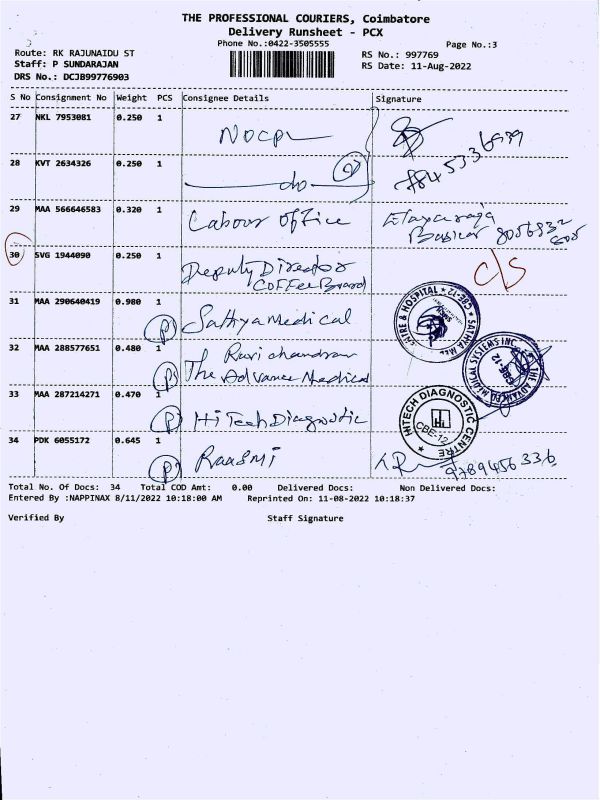 THE PROFESSIONAL COURIERS, Coimbatore
Delivery Runsheet - PCX
Phone No.:0422-3505555
Page No.:3
Route: RK RAJUNAIDU ST
RS No.: 997769
Staff: P SUNDARAJAN
RS Date: 11-Aug-2022
DRS No.: DCJB99776903
S No Consignment No Weight PCS Consignee Details Signature
27 NKL 7953081 0.250 1 NOCPL
28 KVT 2634326 0.250 1 do
29 MAA 566646583 0.320 1 Labour office
30 SVG 1944090 0.250 1 Deputy Director C/S
Coffee Board
31 MAA 290640419 0.980 1 P Sathya Medical
32 MAA 288577651 0.480 1 P Ravi chandran
The Advance Medical
33 MAA 287214271 0.470 1 P Hi Tech Diagnostic
HITECH DIAGNOSTIC CENTRE
CBE-12
THE ADVANCED MEDICAL SYSTEMS INC.
CBE-12
34 PDK 6055172 0.645 1 P
Total No. Of Docs: 34 Total COD Amt: 0.00 Delivered Docs: Non Delivered Docs:
Entered By :NAPPINAX 8/11/2022 10:18:00 AM Reprinted On: 11-08-2022 10:18:37
Verified By Staff Signature